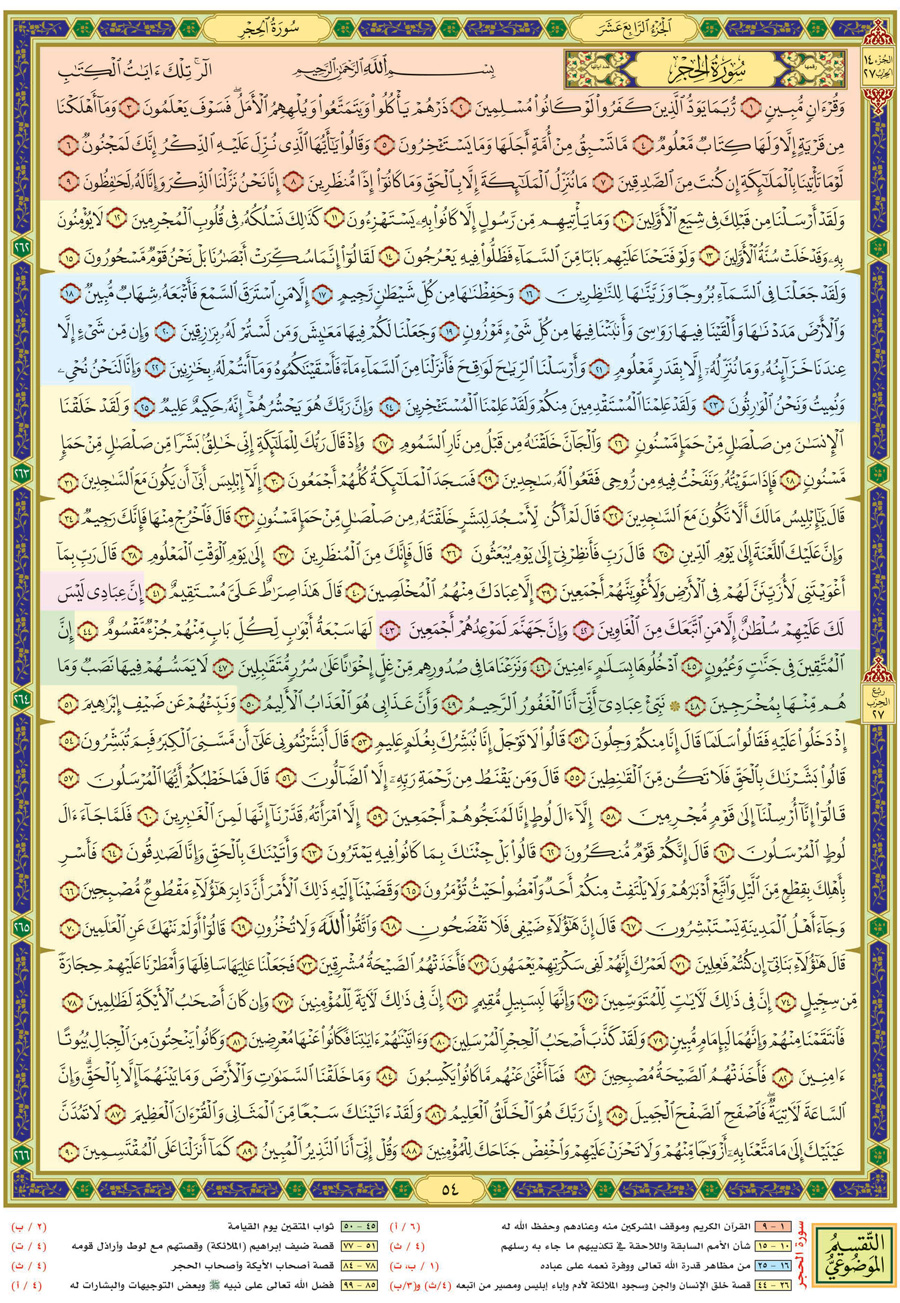 الجُزْءُ الرَّابِعَ عَشَرَ
سُورَةُ الحِجْرِ
الجُزء ١٤
الحِزب ٢٧
سُورَةُ الحِجْرِ
بِسْمِ ٱللَّهِ ٱلرَّحْمَٰنِ ٱلرَّحِيمِ
الٓر ۚ تِلْكَ ءَايَٰتُ ٱلْكِتَٰبِ
وَقُرْءَانٍ مُّبِينٍ ١ رُّبَمَا يَوَدُّ ٱلَّذِينَ كَفَرُوا۟ لَوْ كَانُوا۟ مُسْلِمِينَ ٢ ذَرْهُمْ يَأْكُلُوا۟ وَيَتَمَتَّعُوا۟ وَيُلْهِهِمُ ٱلْأَمَلُ ۖ فَسَوْفَ يَعْلَمُونَ ٣ وَمَآ أَهْلَكْنَا
مِن قَرْيَةٍ إِلَّا وَلَهَا كِتَابٌ مَّعْلُومٌ ٤ مَّا تَسْبِقُ مِنْ أُمَّةٍ أَجَلَهَا وَمَا يَسْتَـْٔخِرُونَ ٥ وَقَالُوا۟ يَٰٓأَيُّهَا ٱلَّذِى نُزِّلَ عَلَيْهِ ٱلذِّكْرُ إِنَّكَ لَمَجْنُونٌ ٦
لَّوْمَا تَأْتِينَا بِٱلْمَلَٰٓئِكَةِ إِن كُنتَ مِنَ ٱلصَّٰدِقِينَ ٧ مَا نُنَزِّلُ ٱلْمَلَٰٓئِكَةَ إِلَّا بِٱلْحَقِّ وَمَا كَانُوٓا۟ إِذًا مُّنظَرِينَ ٨ إِنَّا نَحْنُ نَزَّلْنَا ٱلذِّكْرَ وَإِنَّا لَهُۥ لَحَٰفِظُونَ ٩
وَلَقَدْ أَرْسَلْنَا مِن قَبْلِكَ فِى شِيَعِ ٱلْأَوَّلِينَ ١٠ وَمَا يَأْتِيهِم مِّن رَّسُولٍ إِلَّا كَانُوا۟ بِهِۦ يَسْتَهْزِءُونَ ١١ كَذَٰلِكَ نَسْلُكُهُۥ فِى قُلُوبِ ٱلْمُجْرِمِينَ ١٢ لَا يُؤْمِنُونَ
بِهِۦ وَقَدْ خَلَتْ سُنَّةُ ٱلْأَوَّلِينَ ١٣ وَلَوْ فَتَحْنَا عَلَيْهِم بَابًا مِّنَ ٱلسَّمَآءِ فَظَلُّوا۟ فِيهِ يَعْرُجُونَ ١٤ لَقَالُوٓا۟ إِنَّمَا سُكِّرَتْ أَبْصَٰرُنَا بَلْ نَحْنُ قَوْمٌ مَّسْحُورُونَ ١٥
وَلَقَدْ جَعَلْنَا فِى ٱلسَّمَآءِ بُرُوجًا وَزَيَّنَّٰهَا لِلنَّٰظِرِينَ ١٦ وَحَفِظْنَٰهَا مِن كُلِّ شَيْطَٰنٍ رَّجِيمٍ ١٧ إِلَّا مَنِ ٱسْتَرَقَ ٱلسَّمْعَ فَأَتْبَعَهُۥ شِهَابٌ مُّبِينٌ ١٨
وَٱلْأَرْضَ مَدَدْنَٰهَا وَأَلْقَيْنَا فِيهَا رَوَٰسِىَ وَأَنۢبَتْنَا فِيهَا مِن كُلِّ شَىْءٍ مَّوْزُونٍ ١٩ وَجَعَلْنَا لَكُمْ فِيهَا مَعَٰيِشَ وَمَن لَّسْتُمْ لَهُۥ بِرَٰزِقِينَ ٢٠ وَإِن مِّن شَىْءٍ إِلَّا
عِندَنَا خَزَآئِنُهُۥ وَمَا نُنَزِّلُهُۥٓ إِلَّا بِقَدَرٍ مَّعْلُومٍ ٢١ وَأَرْسَلْنَا ٱلرِّيَٰحَ لَوَٰقِحَ فَأَنزَلْنَا مِنَ ٱلسَّمَآءِ مَآءً فَأَسْقَيْنَٰكُمُوهُ وَمَآ أَنتُمْ لَهُۥ بِخَٰزِنِينَ ٢٢ وَإِنَّا لَنَحْنُ نُحْىِۦ
وَنُمِيتُ وَنَحْنُ ٱلْوَٰرِثُونَ ٢٣ وَلَقَدْ عَلِمْنَا ٱلْمُسْتَقْدِمِينَ مِنكُمْ وَلَقَدْ عَلِمْنَا ٱلْمُسْتَـْٔخِرِينَ ٢٤ وَإِنَّ رَبَّكَ هُوَ يَحْشُرُهُمْ ۚ إِنَّهُۥ حَكِيمٌ عَلِيمٌ ٢٥ وَلَقَدْ خَلَقْنَا
ٱلْإِنسَٰنَ مِن صَلْصَٰلٍ مِّنْ حَمَإٍ مَّسْنُونٍ ٢٦ وَٱلْجَآنَّ خَلَقْنَٰهُ مِن قَبْلُ مِن نَّارِ ٱلسَّمُومِ ٢٧ وَإِذْ قَالَ رَبُّكَ لِلْمَلَٰٓئِكَةِ إِنِّى خَٰلِقٌۢ بَشَرًا مِّن صَلْصَٰلٍ مِّنْ حَمَإٍ
مَّسْنُونٍ ٢٨ فَإِذَا سَوَّيْتُهُۥ وَنَفَخْتُ فِيهِ مِن رُّوحِى فَقَعُوا۟ لَهُۥ سَٰجِدِينَ ٢٩ فَسَجَدَ ٱلْمَلَٰٓئِكَةُ كُلُّهُمْ أَجْمَعُونَ ٣٠ إِلَّآ إِبْلِيسَ أَبَىٰٓ أَن يَكُونَ مَعَ ٱلسَّٰجِدِينَ ٣١
قَالَ يَٰٓإِبْلِيسُ مَا لَكَ أَلَّا تَكُونَ مَعَ ٱلسَّٰجِدِينَ ٣٢ قَالَ لَمْ أَكُن لِّأَسْجُدَ لِبَشَرٍ خَلَقْتَهُۥ مِن صَلْصَٰلٍ مِّنْ حَمَإٍ مَّسْنُونٍ ٣٣ قَالَ فَٱخْرُجْ مِنْهَا فَإِنَّكَ رَجِيمٌ ٣٤
وَإِنَّ عَلَيْكَ ٱللَّعْنَةَ إِلَىٰ يَوْمِ ٱلدِّينِ ٣٥ قَالَ رَبِّ فَأَنظِرْنِىٓ إِلَىٰ يَوْمِ يُبْعَثُونَ ٣٦ قَالَ فَإِنَّكَ مِنَ ٱلْمُنظَرِينَ ٣٧ إِلَىٰ يَوْمِ ٱلْوَقْتِ ٱلْمَعْلُومِ ٣٨ قَالَ رَبِّ بِمَآ
أَغْوَيْتَنِى لَأُزَيِّنَنَّ لَهُمْ فِى ٱلْأَرْضِ وَلَأُغْوِيَنَّهُمْ أَجْمَعِينَ ٣٩ إِلَّا عِبَادَكَ مِنْهُمُ ٱلْمُخْلَصِينَ ٤٠ قَالَ هَٰذَا صِرَٰطٌ عَلَىَّ مُسْتَقِيمٌ ٤١ إِنَّ عِبَادِى لَيْسَ
لَكَ عَلَيْهِمْ سُلْطَٰنٌ إِلَّا مَنِ ٱتَّبَعَكَ مِنَ ٱلْغَاوِينَ ٤٢ وَإِنَّ جَهَنَّمَ لَمَوْعِدُهُمْ أَجْمَعِينَ ٤٣ لَهَا سَبْعَةُ أَبْوَٰبٍ لِّكُلِّ بَابٍ مِّنْهُمْ جُزْءٌ مَّقْسُومٌ ٤٤ إِنَّ
ٱلْمُتَّقِينَ فِى جَنَّٰتٍ وَعُيُونٍ ٤٥ ٱدْخُلُوهَا بِسَلَٰمٍ ءَامِنِينَ ٤٦ وَنَزَعْنَا مَا فِى صُدُورِهِم مِّنْ غِلٍّ إِخْوَٰنًا عَلَىٰ سُرُرٍ مُّتَقَٰبِلِينَ ٤٧ لَا يَمَسُّهُمْ فِيهَا نَصَبٌ وَمَا
هُم مِّنْهَا بِمُخْرَجِينَ ٤٨ ۞ نَبِّئْ عِبَادِىٓ أَنِّىٓ أَنَا ٱلْغَفُورُ ٱلرَّحِيمُ ٤٩ وَأَنَّ عَذَابِى هُوَ ٱلْعَذَابُ ٱلْأَلِيمُ ٥٠ وَنَبِّئْهُمْ عَن ضَيْفِ إِبْرَٰهِيمَ ٥١
رُبْعُ الحِزب ٢٧
إِذْ دَخَلُوا۟ عَلَيْهِ فَقَالُوا۟ سَلَٰمًا قَالَ إِنَّا مِنكُمْ وَجِلُونَ ٥٢ قَالُوا۟ لَا تَوْجَلْ إِنَّا نُبَشِّرُكَ بِغُلَٰمٍ عَلِيمٍ ٥٣ قَالَ أَبَشَّرْتُمُونِى عَلَىٰٓ أَن مَّسَّنِىَ ٱلْكِبَرُ فَبِمَ تُبَشِّرُونَ ٥٤
قَالُوا۟ بَشَّرْنَٰكَ بِٱلْحَقِّ فَلَا تَكُن مِّنَ ٱلْقَٰنِطِينَ ٥٥ قَالَ وَمَن يَقْنَطُ مِن رَّحْمَةِ رَبِّهِۦٓ إِلَّا ٱلضَّآلُّونَ ٥٦ قَالَ فَمَا خَطْبُكُمْ أَيُّهَا ٱلْمُرْسَلُونَ ٥٧
قَالُوٓا۟ إِنَّآ أُرْسِلْنَآ إِلَىٰ قَوْمٍ مُّجْرِمِينَ ٥٨ إِلَّآ ءَالَ لُوطٍ إِنَّا لَمُنَجُّوهُمْ أَجْمَعِينَ ٥٩ إِلَّا ٱمْرَأَتَهُۥ قَدَّرْنَآ إِنَّهَا لَمِنَ ٱلْغَٰبِرِينَ ٦٠ فَلَمَّا جَآءَ ءَالَ
لُوطٍ ٱلْمُرْسَلُونَ ٦١ قَالَ إِنَّكُمْ قَوْمٌ مُّنكَرُونَ ٦٢ قَالُوا۟ بَلْ جِئْنَٰكَ بِمَا كَانُوا۟ فِيهِ يَمْتَرُونَ ٦٣ وَأَتَيْنَٰكَ بِٱلْحَقِّ وَإِنَّا لَصَٰدِقُونَ ٦٤ فَأَسْرِ
بِأَهْلِكَ بِقِطْعٍ مِّنَ ٱلَّيْلِ وَٱتَّبِعْ أَدْبَٰرَهُمْ وَلَا يَلْتَفِتْ مِنكُمْ أَحَدٌ وَٱمْضُوا۟ حَيْثُ تُؤْمَرُونَ ٦٥ وَقَضَيْنَآ إِلَيْهِ ذَٰلِكَ ٱلْأَمْرَ أَنَّ دَابِرَ هَٰٓؤُلَآءِ مَقْطُوعٌ مُّصْبِحِينَ ٦٦
وَجَآءَ أَهْلُ ٱلْمَدِينَةِ يَسْتَبْشِرُونَ ٦٧ قَالَ إِنَّ هَٰٓؤُلَآءِ ضَيْفِى فَلَا تَفْضَحُونِ ٦٨ وَٱتَّقُوا۟ ٱللَّهَ وَلَا تُخْزُونِ ٦٩ قَالُوٓا۟ أَوَلَمْ نَنْهَكَ عَنِ ٱلْعَٰلَمِينَ ٧٠
قَالَ هَٰٓؤُلَآءِ بَنَاتِىٓ إِن كُنتُمْ فَٰعِلِينَ ٧١ لَعَمْرُكَ إِنَّهُمْ لَفِى سَكْرَتِهِمْ يَعْمَهُونَ ٧٢ فَأَخَذَتْهُمُ ٱلصَّيْحَةُ مُشْرِقِينَ ٧٣ فَجَعَلْنَا عَٰلِيَهَا سَافِلَهَا وَأَمْطَرْنَا عَلَيْهِمْ حِجَارَةً
مِّن سِجِّيلٍ ٧٤ إِنَّ فِى ذَٰلِكَ لَءَايَٰتٍ لِّلْمُتَوَسِّمِينَ ٧٥ وَإِنَّهَا لَبِسَبِيلٍ مُّقِيمٍ ٧٦ إِنَّ فِى ذَٰلِكَ لَءَايَةً لِّلْمُؤْمِنِينَ ٧٧ وَإِن كَانَ أَصْحَٰبُ ٱلْأَيْكَةِ لَظَٰلِمِينَ ٧٨
فَٱنتَقَمْنَا مِنْهُمْ وَإِنَّهُمَا لَبِإِمَامٍ مُّبِينٍ ٧٩ وَلَقَدْ كَذَّبَ أَصْحَٰبُ ٱلْحِجْرِ ٱلْمُرْسَلِينَ ٨٠ وَءَاتَيْنَٰهُمْ ءَايَٰتِنَا فَكَانُوا۟ عَنْهَا مُعْرِضِينَ ٨١ وَكَانُوا۟ يَنْحِتُونَ مِنَ ٱلْجِبَالِ بُيُوتًا
ءَامِنِينَ ٨٢ فَأَخَذَتْهُمُ ٱلصَّيْحَةُ مُصْبِحِينَ ٨٣ فَمَآ أَغْنَىٰ عَنْهُم مَّا كَانُوا۟ يَكْسِبُونَ ٨٤ وَمَا خَلَقْنَا ٱلسَّمَٰوَٰتِ وَٱلْأَرْضَ وَمَا بَيْنَهُمَآ إِلَّا بِٱلْحَقِّ ۗ وَإِنَّ
ٱلسَّاعَةَ لَءَاتِيَةٌ ۖ فَٱصْفَحِ ٱلصَّفْحَ ٱلْجَمِيلَ ٨٥ إِنَّ رَبَّكَ هُوَ ٱلْخَلَّٰقُ ٱلْعَلِيمُ ٨٦ وَلَقَدْ ءَاتَيْنَٰكَ سَبْعًا مِّنَ ٱلْمَثَانِى وَٱلْقُرْءَانَ ٱلْعَظِيمَ ٨٧ لَا تَمُدَّنَّ
عَيْنَيْكَ إِلَىٰ مَا مَتَّعْنَا بِهِۦٓ أَزْوَٰجًا مِّنْهُمْ وَلَا تَحْزَنْ عَلَيْهِمْ وَٱخْفِضْ جَنَاحَكَ لِلْمُؤْمِنِينَ ٨٨ وَقُلْ إِنِّىٓ أَنَا ٱلنَّذِيرُ ٱلْمُبِينُ ٨٩ كَمَآ أَنزَلْنَا عَلَى ٱلْمُقْتَسِمِينَ ٩٠
٢٦٢
٢٦٣
٢٦٤
٢٦٥
٢٦٦
٥٤
التَّقسِيمُ المَوضُوعِيُّ
سورة الحجر
١ - ٩ القرآن الكريم وموقف المشركين منه وعنادهم وحفظ الله له (٦ / أ)
١٠ - ١٥ شأن الأمم السابقة واللاحقة في تكذيبهم ما جاء به رسلهم (٤ / ث)
١٦ - ٢٥ من مظاهر قدرة الله تعالى ووفرة نعمه على عباده (١ / ب، ت)
٢٦ - ٤٤ قصة خلق الإنسان والجن وسجود الملائكة لآدم وإباء إبليس ومصير من اتبعه (٤/ث) و(٣/ب)
٤٥ - ٥٠ ثواب المتقين يوم القيامة (٢ / ب)
٥١ - ٧٧ قصة ضيف إبراهيم (الملائكة) وقصتهم مع لوط وأراذل قومه (٤ / ت)
٧٨ - ٨٤ قصة أصحاب الأيكة وأصحاب الحجر (٤ / ث)
٨٥ - ٩٩ فضل الله تعالى على نبيه ﷺ وبعض التوجيهات والبشارات له (٤ / أ)